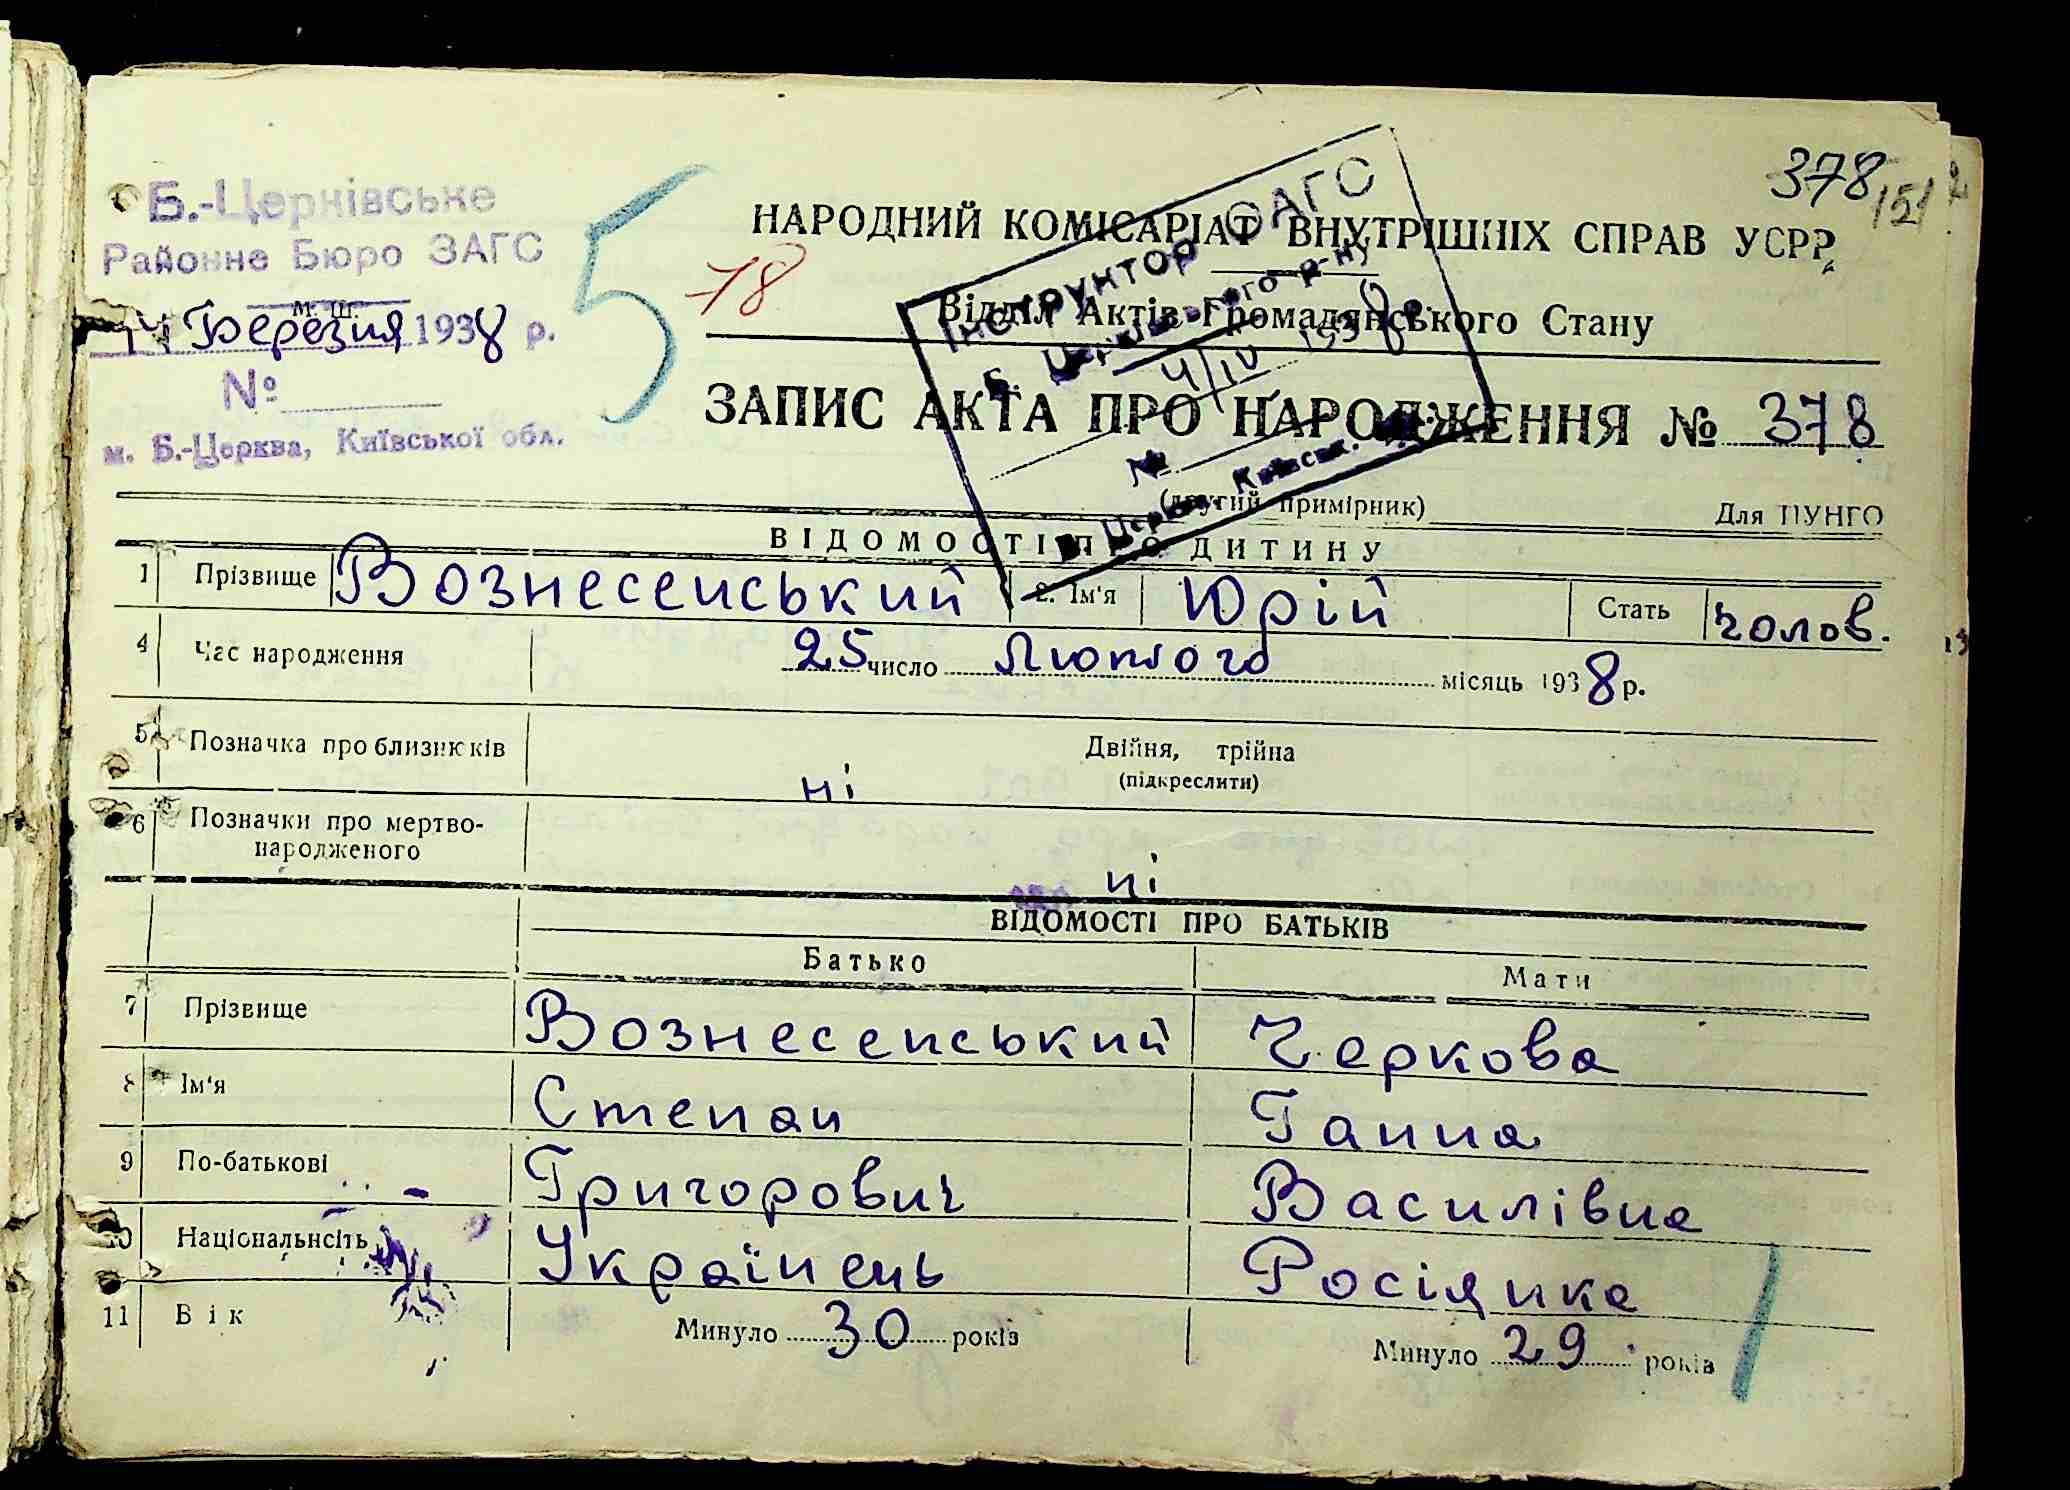 378
151
Б.-Церківське
Районне Бюро ЗАГС
м. ш.
4 Березня 1938 р.
№
м. Б.-Церква, Київської обл.
5
18
НАРОДНИЙ КОМІСАРІАТ ВНУТРІШНІХ СПРАВ УСРР
Відділ Актів Громадянського Стану
Інструктор ЗАГС
Б. Церківського р-ну
4/IV 1938 р.
№
Б. Церква, Київськ.
ЗАПИС АКТА ПРО НАРОДЖЕННЯ № 378
(другий примірник)
Для ЦУНГО
ВІДОМОСТІ ПРО ДИТИНУ
1 Прізвище Вознесенський 2. Ім'я Юрій Стать чолов.
4 Час народження 25 число Лютого місяць 1938 р.
5 Позначка про близнюків ні Двійня, трійна
(підкреслити)
6 Позначки про мертво-
народженого ні
ВІДОМОСТІ ПРО БАТЬКІВ
Батько Мати
7 Прізвище Вознесенський Черкова
8 Ім'я Степан Ганна
9 По-батькові Григорович Василівна
10 Національнсіть Українець Росіянка
11 Вік Минуло 30 років Минуло 29 років